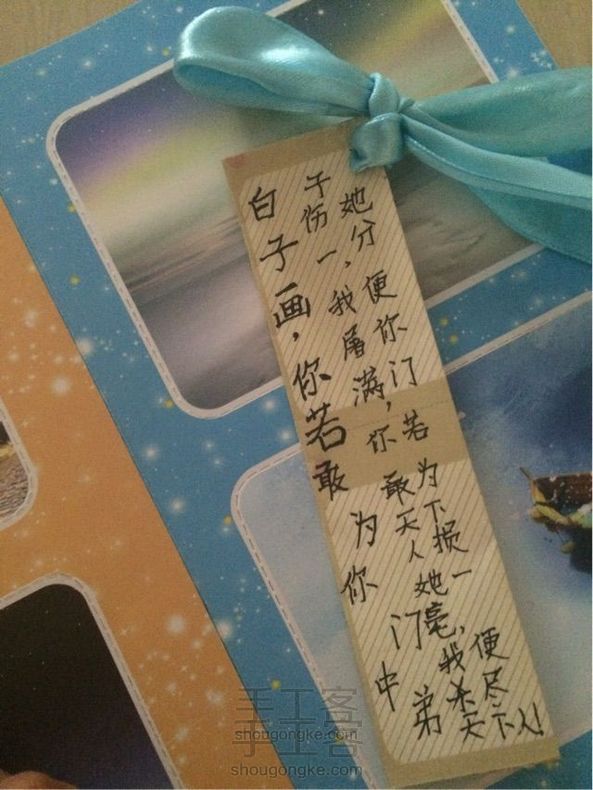 白子画，你若敢为你门中弟
子伤她一分，我便屠你满门，你若敢为天下人损她一毫，我便杀尽天下人!
手工客
手工客
shougongke.com
shougongke.com